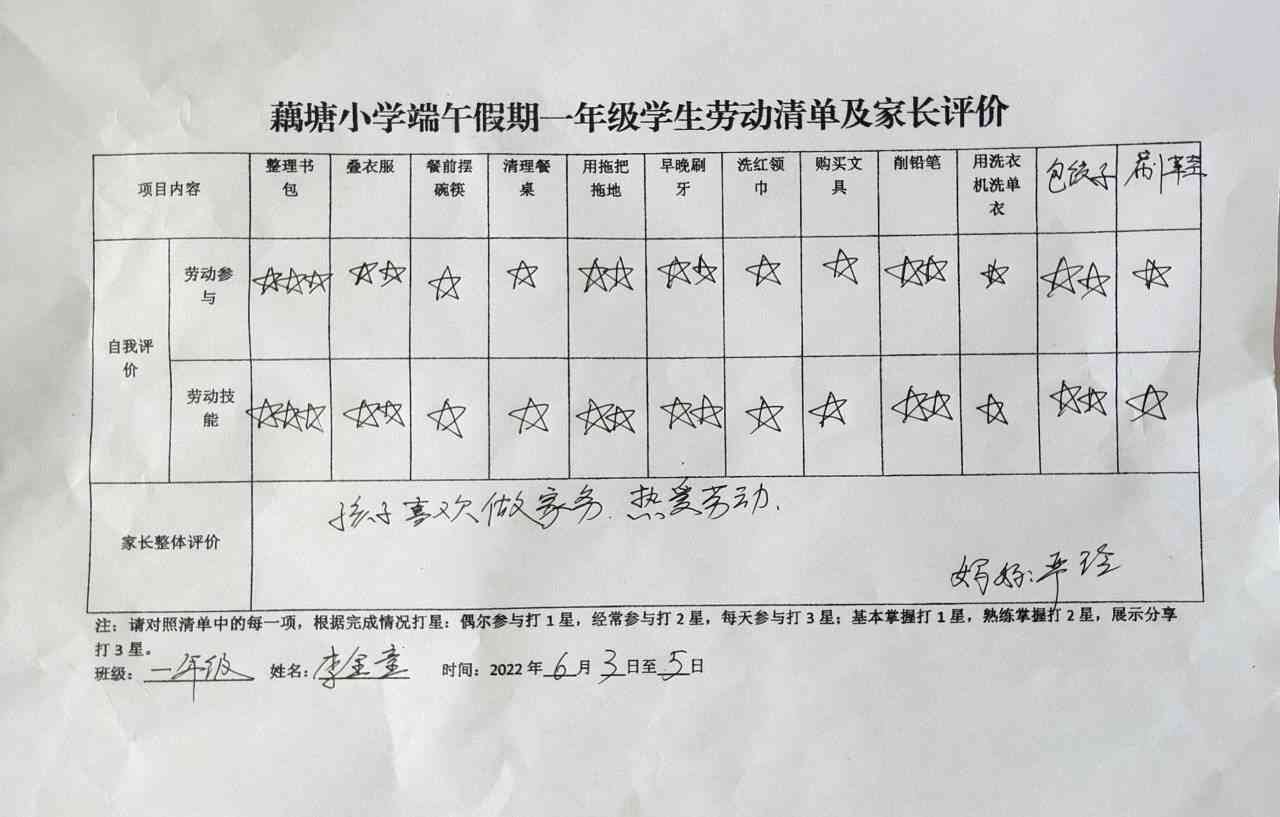 藕塘小学端午假期一年级学生劳动清单及家长评价
项目内容 整理书包 叠衣服 餐前摆碗筷 清理餐桌 用拖把拖地 早晚刷牙 洗红领巾 购买文具 削铅笔 用洗衣机洗单衣 包饺子 刷鞋
自我评价
劳动参与 ☆☆☆ ☆☆ ☆ ☆ ☆☆ ☆☆ ☆ ☆ ☆☆ ☆ ☆☆ ☆
劳动技能 ☆☆☆ ☆☆ ☆ ☆ ☆☆ ☆☆ ☆ ☆ ☆☆ ☆ ☆☆ ☆
家长整体评价
孩子喜欢做家务.热爱劳动.
妈妈:
注：请对照清单中的每一项，根据完成情况打星：偶尔参与打1星，经常参与打2星，每天参与打3星；基本掌握打1星，熟练掌握打2星，展示分享
打3星。
班级：一年级 姓名：李金童 时间：2022年6月3日至5日